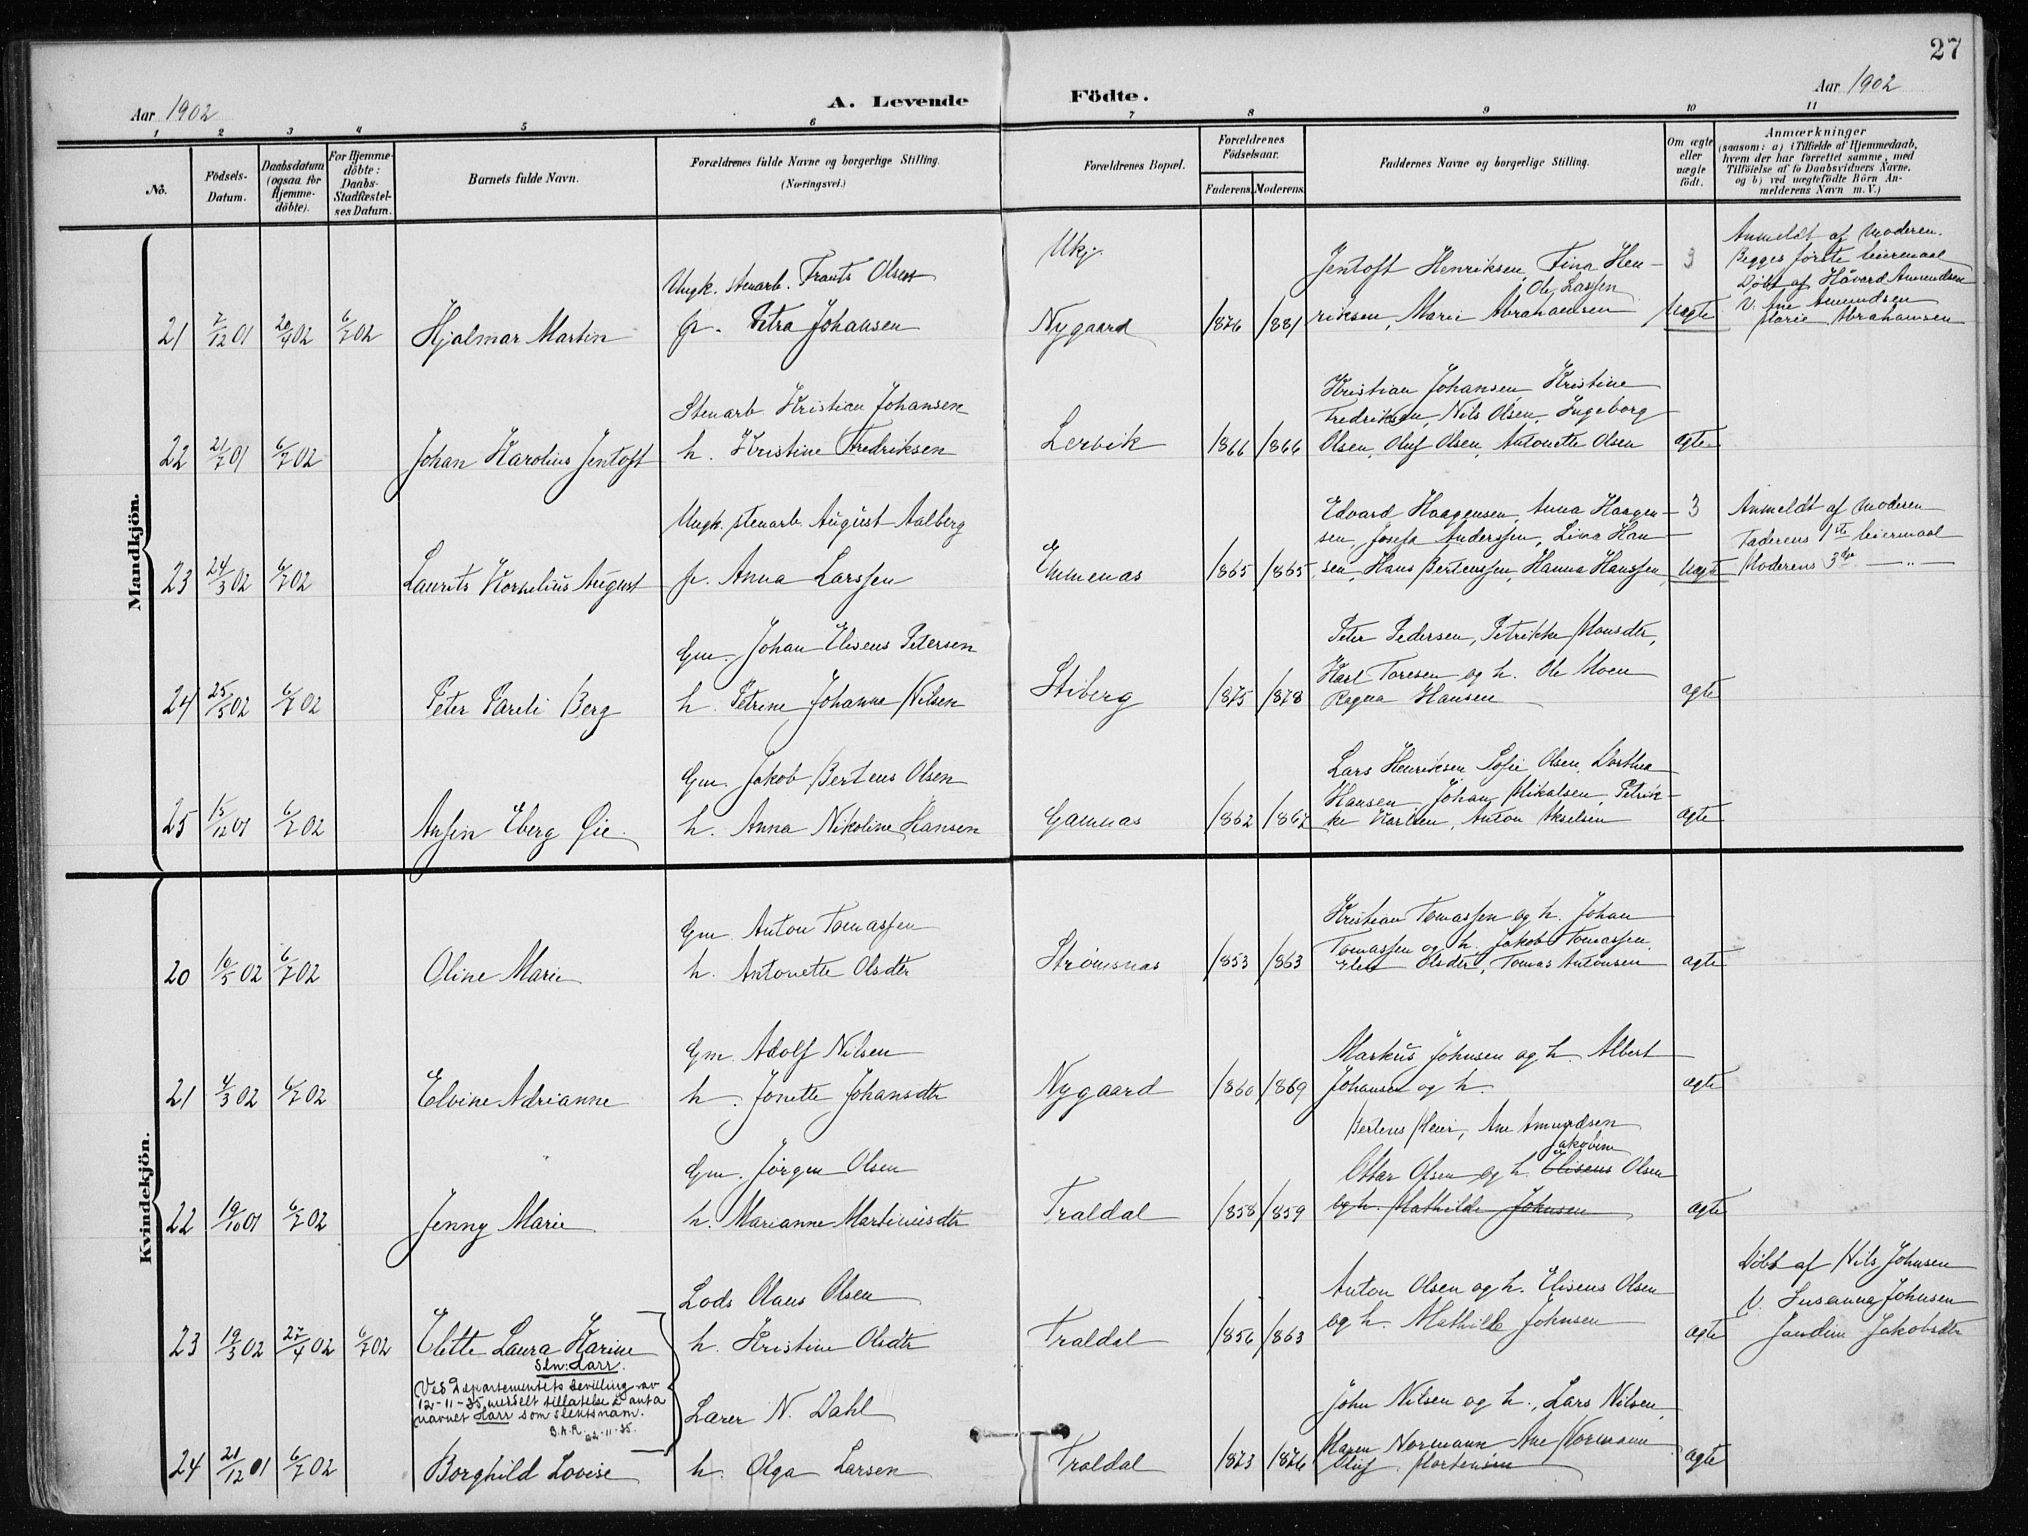 27
Aar 1902
A. Levende Födte.
Aar 1902
1 2 3 4 5 6 7 8 9 10 11
No.
Födsels-
Datum.
Daabsdatum
(ogsaa for
Hjemme-
döbte).
For Hjemme-
döbte:
Daabs-
Stadfæstel-
ses Datum.
Barnets fulde Navn.
Forældrenes fulde Navne og borgerlige Stilling.
(Næringsvei.)
Forældrenes Bopæl.
Forældrenes
Födselsaar.
Faderens. Moderens.
Faddernes Navne og borgerlige Stilling.
Om ægte
eller
uægte
født.
Anmærkninger
(saasom: a) i Tilfælde af Hjemmedaab,
hvem der har forrettet samme, med
Tilföielse af to Daabsvidners Navne,
og b) ved uægtefödte Börn An-
melderens Navn m. V.)
Mandkjön.
Ungk. stenarb. Frants Olsen
Ukj.
Jentoft Henriksen, Tina Hen-
Ole Larsen
3
Anmeldt af Moderen.
Begges første leiermaal
Døbt af Håvard Amundsen
V. Ane Amundsen
21 2/12 01 20/4 02 6/7 02 Hjalmar Martin p. Petra Johansen Nygaard 1876 1881 riksen, Marie Abrahamsen Uægte Marie Abrahamsen
Stenarb. Kristian Johansen
Kristian Johansen, Kristine
Fredriksen, Nils Olsen, Ingeborg
22 21/7 01 6/7 02 Johan Karolius Jentoft h. Kristine Fredriksen Lervik 1866 1866 Olsen, Oluf Olsen, Antonette Olsen ægte
Ungk. stenarb. August Aalberg
Edvard Haagensen, Anna Haagen- 3 Anmeldt af Moderen
sen, Josefa Anderssen, Lina Han- Faderens 1ste leiermaal
23 24/3 02 6/7 02 Laurits Kornelius August p. Anna Larssen Emmenas 1865 1865 sen, Hans Bertenssen, Hanna Hanssen, Uægte Moderens 3die — „ —
Gm. Johan Eliseus Petersen
Peter Pedersen, Petrikke Monsdtr,
Karl Toresen og h. Ole Moen
24 25/5 02 6/7 02 Peter Pareli Berg h. Petrine Johanna Nilsen Stiberg 1875 1878 Ragna Hansen ægte
Gm. Jakob Berteus Olsen
Lars Henriksen, Sofie Olsen, Dorthea
Hansen, Johan Mikalsen, Petrik-
25 15/12 01 6/7 02 Anfin Eberg Øie. h. Anna Nikoline Hansen Gamnas 1862 1867 ke Karlsen, Anton Akselsen ægte
Kvindekjön.
Gm. Anton Tomassen
Kristian Tomassen og h. Johan
Tomassen og h. Jakob Tomassen,
20 16/5 02 6/7 02 Oline Marie h. Antonette Olsdtr Strømsnas 1853 1863 Elen Olsdtr, Tomas Antonsen ægte
Gm. Adolf Nilsen
Markus Johnsen og h. Albert
21 4/3 02 6/7 02 Elvine Adrianne h. Jonette Johansdtr Nygaard 1860 1869 Johansen og h. ægte
Berteus Meier, Ane Amundsen
Jakobine
Gm. Jørgen Olsen
Ottar Olsen og h. Eliseus Olsen
22 19/10 01 6/7 02 Jenny Marie h. Marianne Martinusdtr Traldal 1858 1859 og h. Mathilde Johnsen ægte
Lods Olaus Olsen
Anton Olsen og h. Eliseus Olsen
Døbt af Nils Johnsen
V. Susanna Johnsen
23 19/3 02 27/4 02 6/7 02 Elette Laura Karine h. Kristine Olsdtr Traldal 1856 1863 og h. Mathilde Johnsen ægte Jandine Jakobsdtr
Sln: Harr.
Ved Departementets bevilling av
12-11-35, meddelt tillatelse å anta
navnet Harr som slektsnam.
B.A.R. 22-11-35.
Lærer N. Dahl
John Nilsen og h., Lars Nilsen,
Maren Normann, Ane Normann
24 21/12 01 6/7 02 Borghild Lovise h. Olga Larsen Traldal 1873 1876 Oluf Mortensen ægte